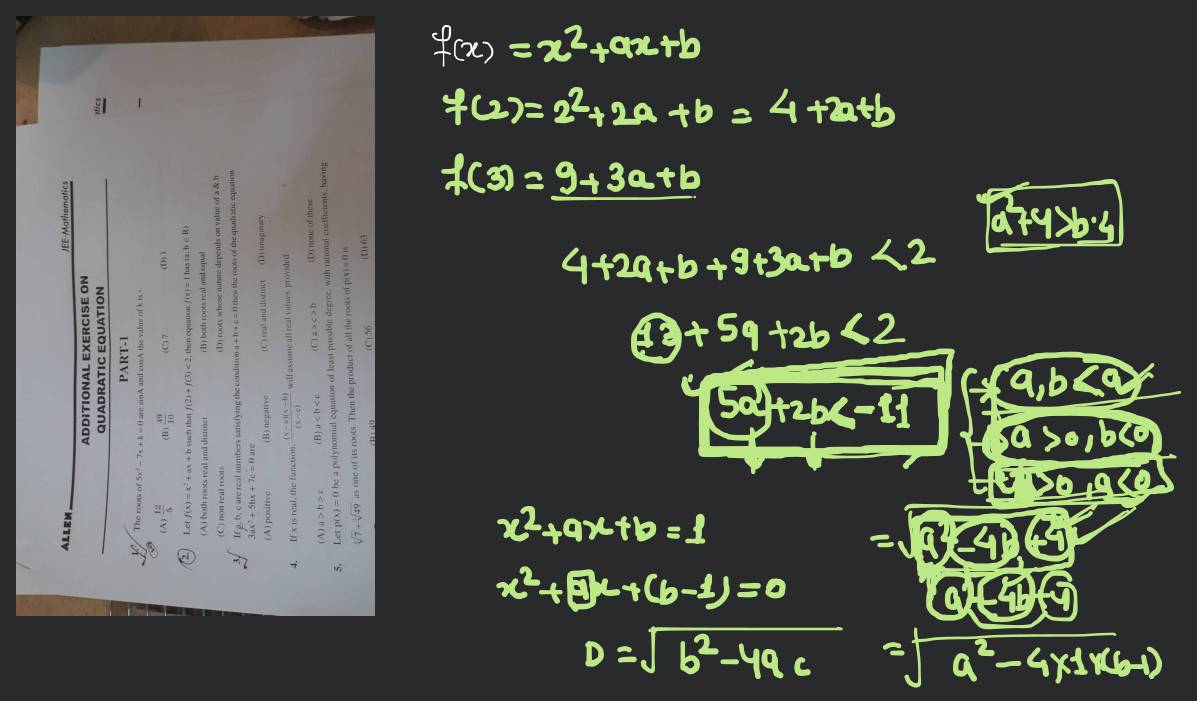 ALLEN
JEE-Mathematics
ADDITIONAL EXERCISE ON
QUADRATIC EQUATION
PART-1
The roots of 5x² – 7x + k = 0 are sinA and cosA the value of k is -
(A) 12/5 (B) 49/10 (C) 7 (D) 1
2. Let f(x) = x² + ax + b such that f(2) + f(3) < 2, then equation f(x) = 1 has (a, b ∈ R)
(A) both roots real and distinct (B) both roots real and equal
(C) non real roots (D) roots whose nature depends on value of a & b
3. If a, b, c are real numbers satisfying the condition a + b + c = 0 then the roots of the quadratic equation
3ax² + 5bx + 7c = 0 are
(A) positive (B) negative (C) real and distinct (D) imaginary
4. If x is real, the function, (x – a)(x – b)/(x – c) will assume all real values, provided
(A) a > b > c (B) a < b < c (C) a > c > b (D) none of these
5. Let p(x) = 0 be a polynomial equation of least possible degree, with rational coefficients, having
∛7 + ∛49 as one of its roots. Then the product of all the roots of p(x) = 0 is
(B) 49 (C) 56 (D) 63
f(x) = x²+ax+b
f(2)= 2²+2a+b = 4+2a+b
f(3) = 9+3a+b
a²+4>b·4
4+2a+b+9+3a+b <2
13+5a+2b<2
5a+2b<-11
a>0, b<0
x²+ax+b=1
=√a²-4b+4
x²+ax+(b-1)=0
a²-4b+4
D=√b²-4ac
=√a²-4×1×(b-1)